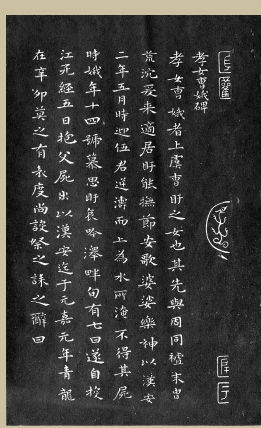 孝女曹娥碑
孝女曹娥者上虞曹盱之女也其先與周同末胄
荒沉爰来適居盱能撫節安歌婆娑樂神以漢安
二年五月時迎伍君逆濤而上為水所淹不得其屍
時娥年十四號慕思盱哀吟澤畔旬有七日遂自投
江死經五日抱父屍出以漢安迄于元嘉元年青龍
在辛卯莫之有表度尚設祭之誄之辭曰